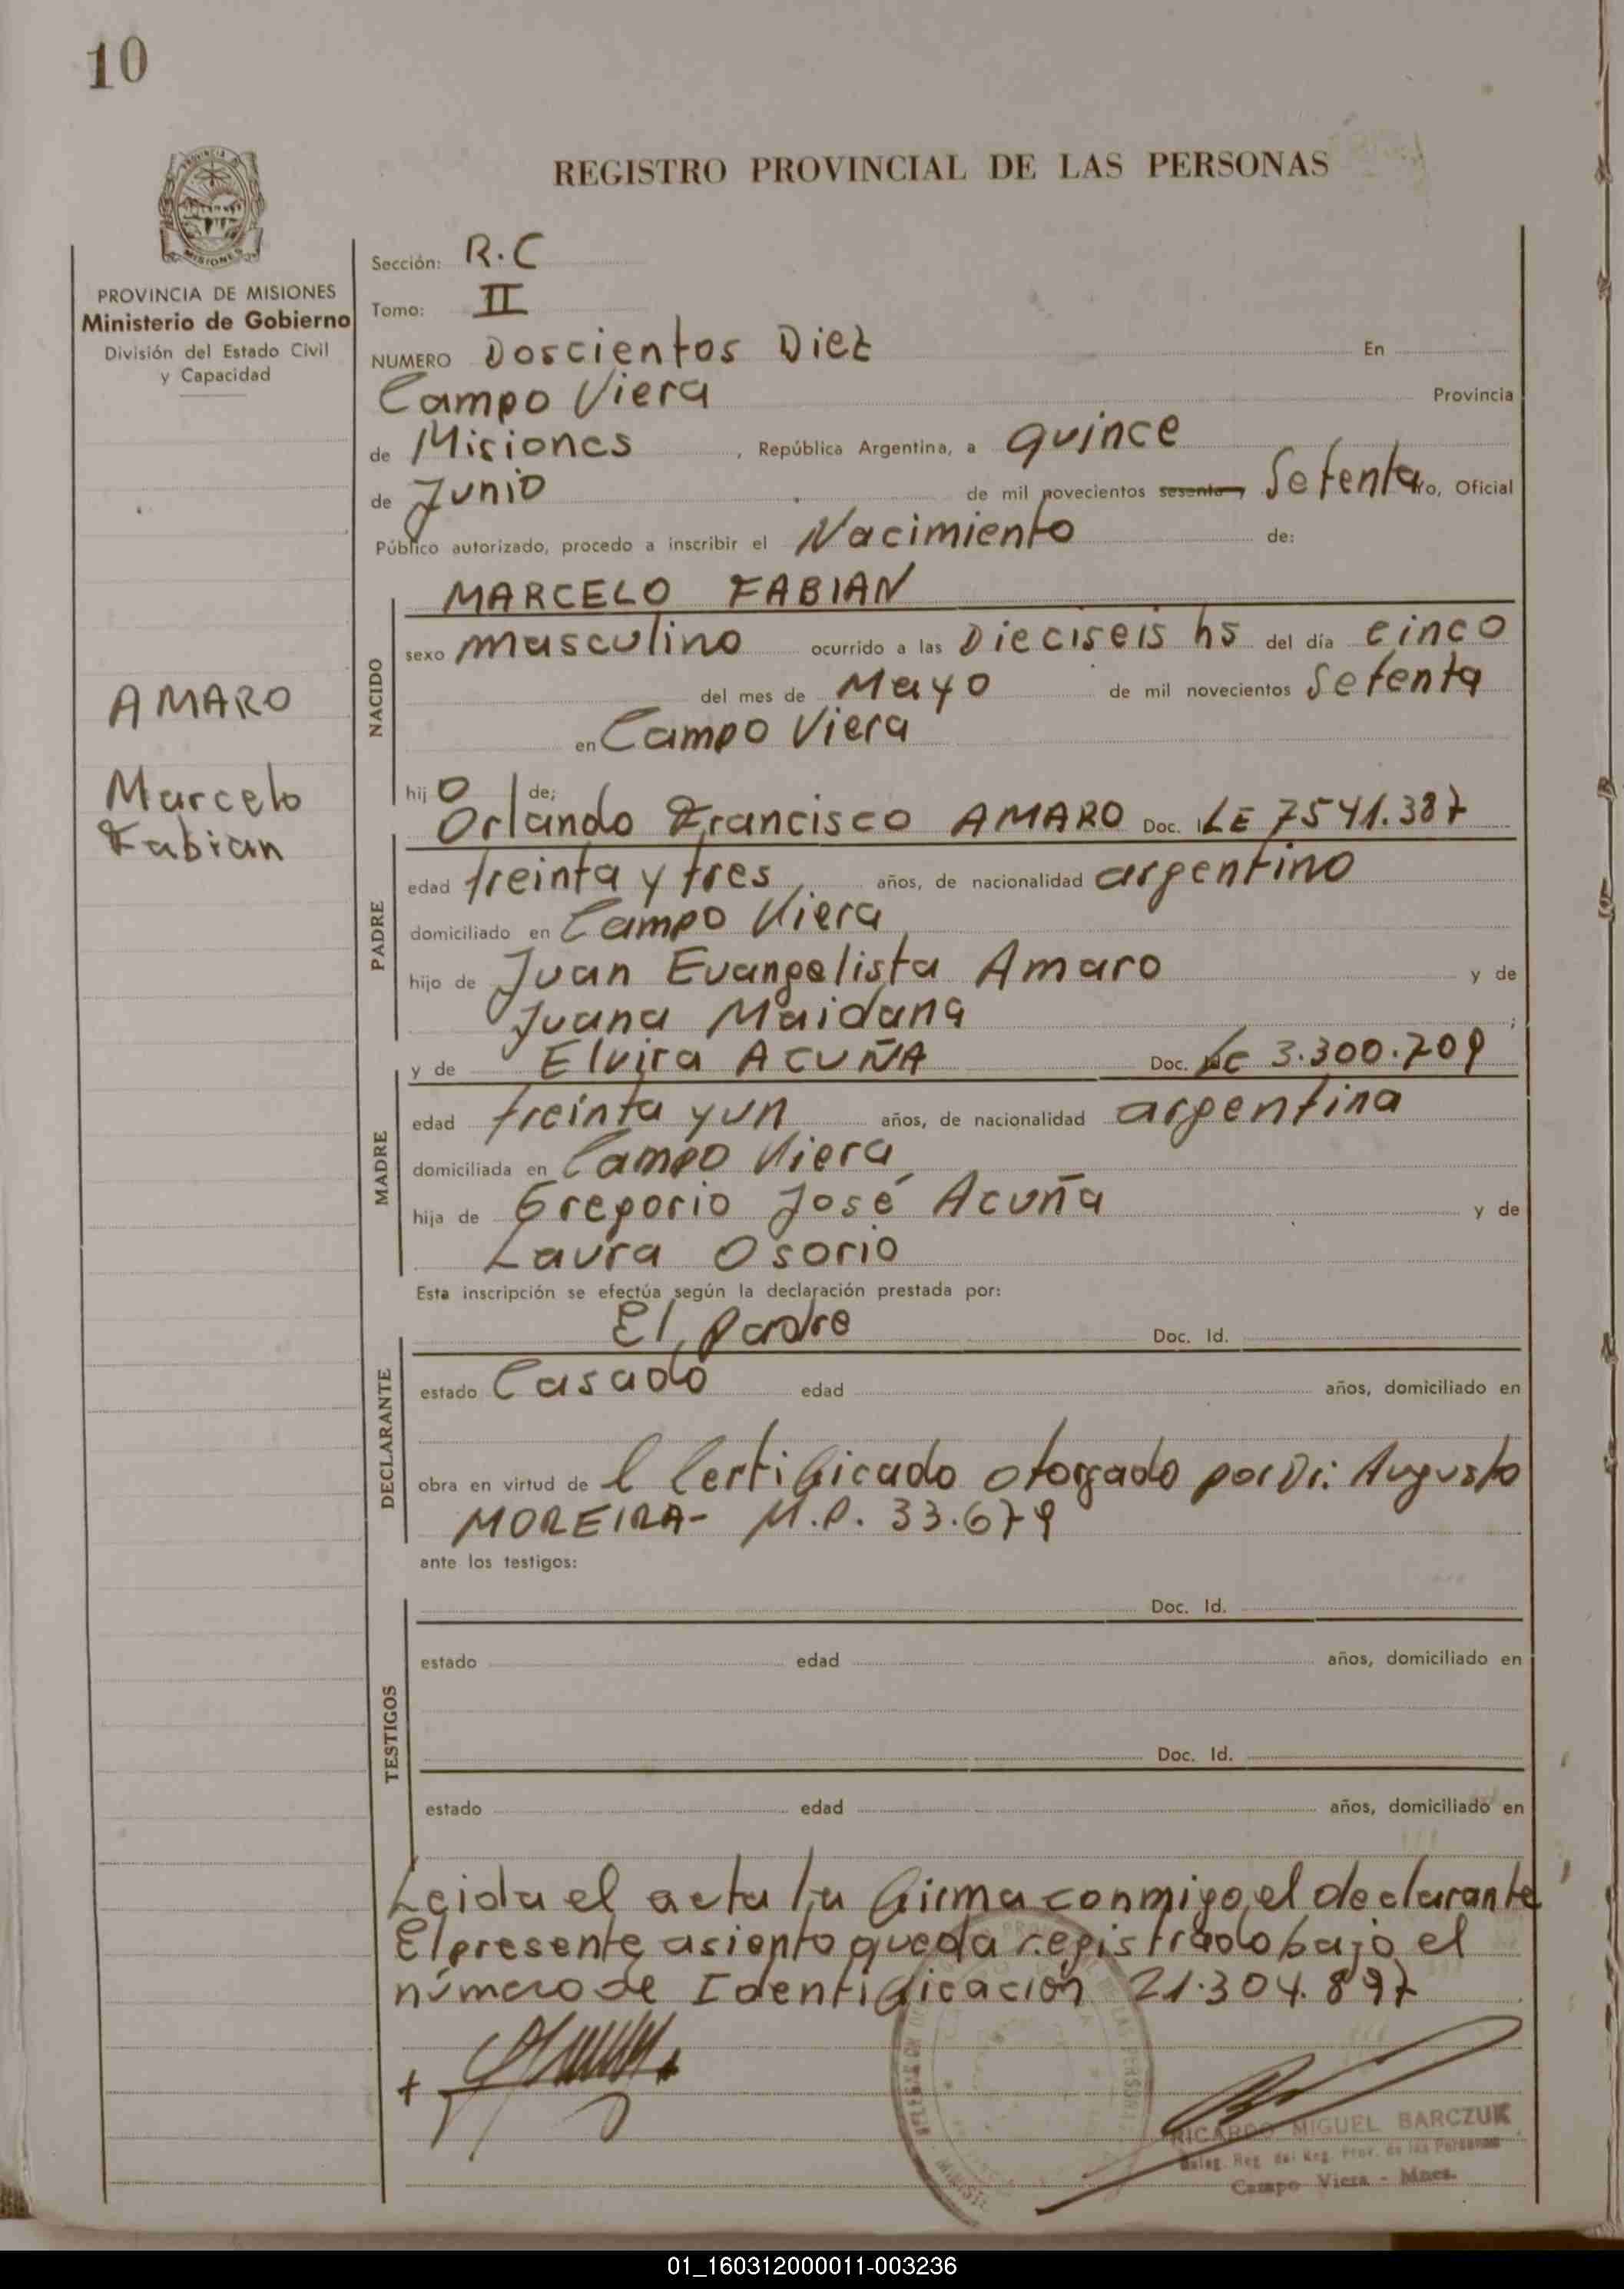 10
PROVINCIA DE MISIONES
Ministerio de Gobierno
División del Estado Civil
y Capacidad
AMARO
Marcelo
Fabian
REGISTRO PROVINCIAL DE LAS PERSONAS
Sección: R.C
Tomo: II
NUMERO Doscientos Diez En
Campo Viera Provincia
de Misiones, República Argentina, a quince
de Junio de mil novecientos sesenta y Setenta ro, Oficial
Público autorizado, procedo a inscribir el Nacimiento de:
NACIDO
MARCELO FABIAN
sexo masculino ocurrido a las Dieciseis hs del día cinco
del mes de Mayo de mil novecientos Setenta
en Campo Viera
hijo de;
PADRE
Orlando Francisco AMARO Doc. LE 7541.387
edad treinta y tres años, de nacionalidad argentino
domiciliado en Campo Viera
hijo de Juan Evangelista Amaro y de
Juana Maidana ;
MADRE
y de Elvira ACUÑA Doc. LC 3.300.709
edad treinta y un años, de nacionalidad argentina
domiciliada en Campo Viera
hija de Gregorio José Acuña y de
Laura Osorio
Esta inscripción se efectúa según la declaración prestada por:
DECLARANTE
El padre Doc. Id.
estado Casado edad años, domiciliado en
obra en virtud de l Certificado otorgado por Dr: Augusto
MOREIRA- M.P. 33.679
ante los testigos:
TESTIGOS
Doc. Id.
estado edad años, domiciliado en
Doc. Id.
estado edad años, domiciliado en
Leida el acta la firma conmigo el declarante
El presente asiento queda registrado bajo el
número de Identificación 21.304.897
RICARDO MIGUEL BARCZUK
Deleg. Reg. del Reg. Prov. de las Personas
Campo Viera - Mnes.
01_160312000011-003236